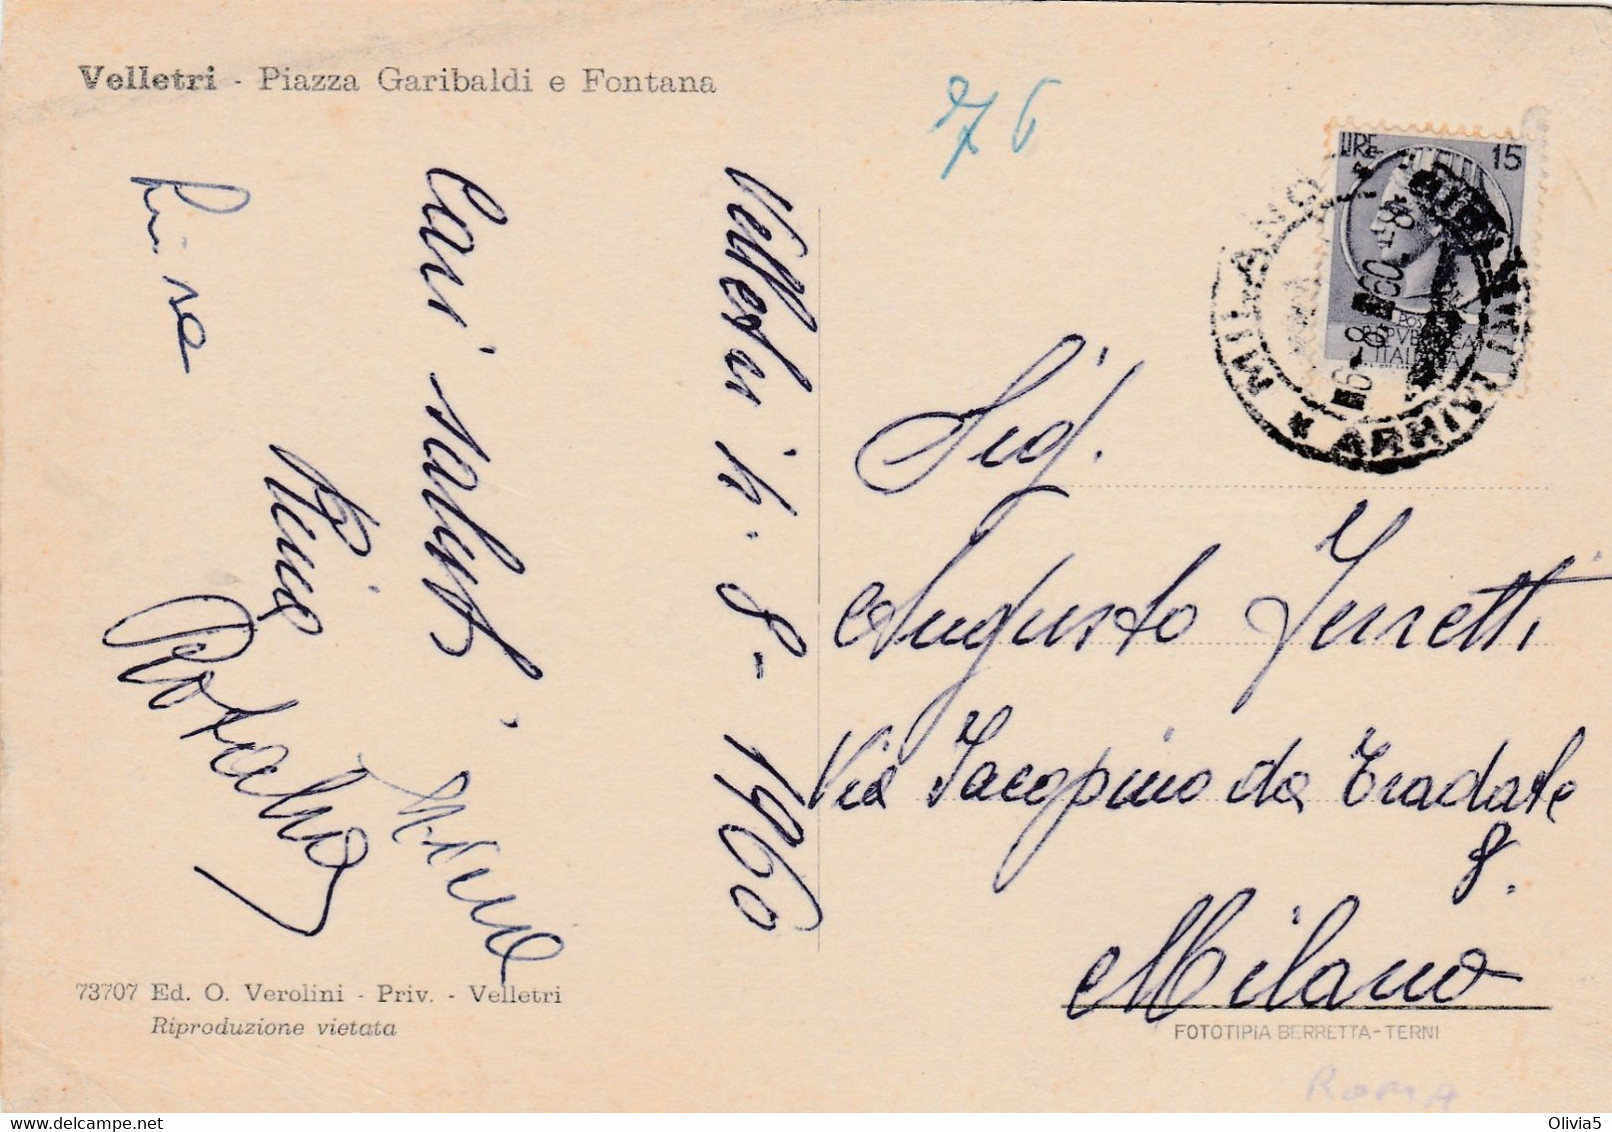 Velletri - Piazza Garibaldi e Fontana
76
LIRE 15
POSTE
REPVBBLICA
ITALIANA
MILANO * ARRIVI
6-8 60
Velletri 4.8-1960
Cari saluti
Luisa
Sig.
Augusto Ferretti
Via Jacopino da Tradate
8.
Milano
73707 Ed. O. Verolini - Priv. - Velletri
Riproduzione vietata
FOTOTIPIA BERRETTA-TERNI
ROMA
Olivia5